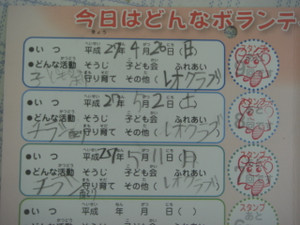 今日はどんなボランテ
●いつ 平成29年4月26日(日)
●どんな活動 そうじ 子ども会 ふれあい
守り育て その他(レオクラブ)
スタンプ
●いつ 平成29年5月2日(土)
●どんな活動 そうじ 子ども会 ふれあい
チラシ配り 守り育て その他(レオクラブ)
●いつ 平成29年5月11日(月)
●どんな活動 そうじ 子ども会 ふれあい
チラシ配り 守り育て その他(レオクラブ)
●いつ 平成 年 月 日( )
スタンプ
あと